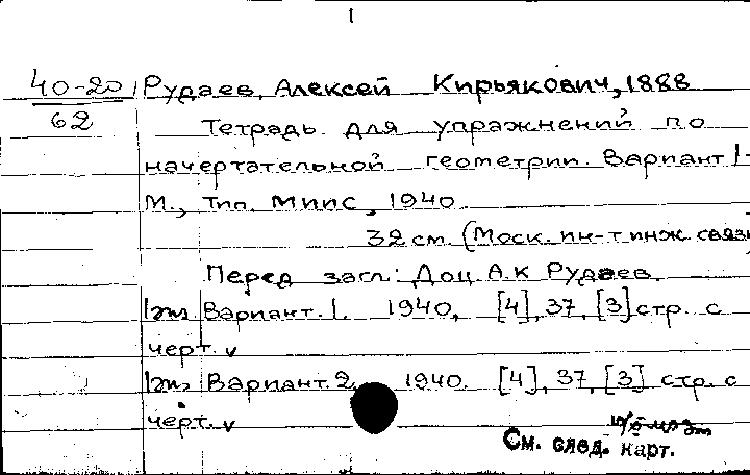 1
40-20 Рудаев, Алексей Кирьякович, 1888
62
Тетрадь для упражнений по
начертательной геометрии. Вариант 1-
М., Тип. МИИС, 1940.
32 см. (Моск. ин-т инж. связи
Перед загл.: Доц. А.К Рудаев.
Вариант. 1. 1940, [4], 37, [3] стр. с
черт. v
Вариант. 2. 1940. [4], 37, [3] стр. с
черт. v
См. след. карт.